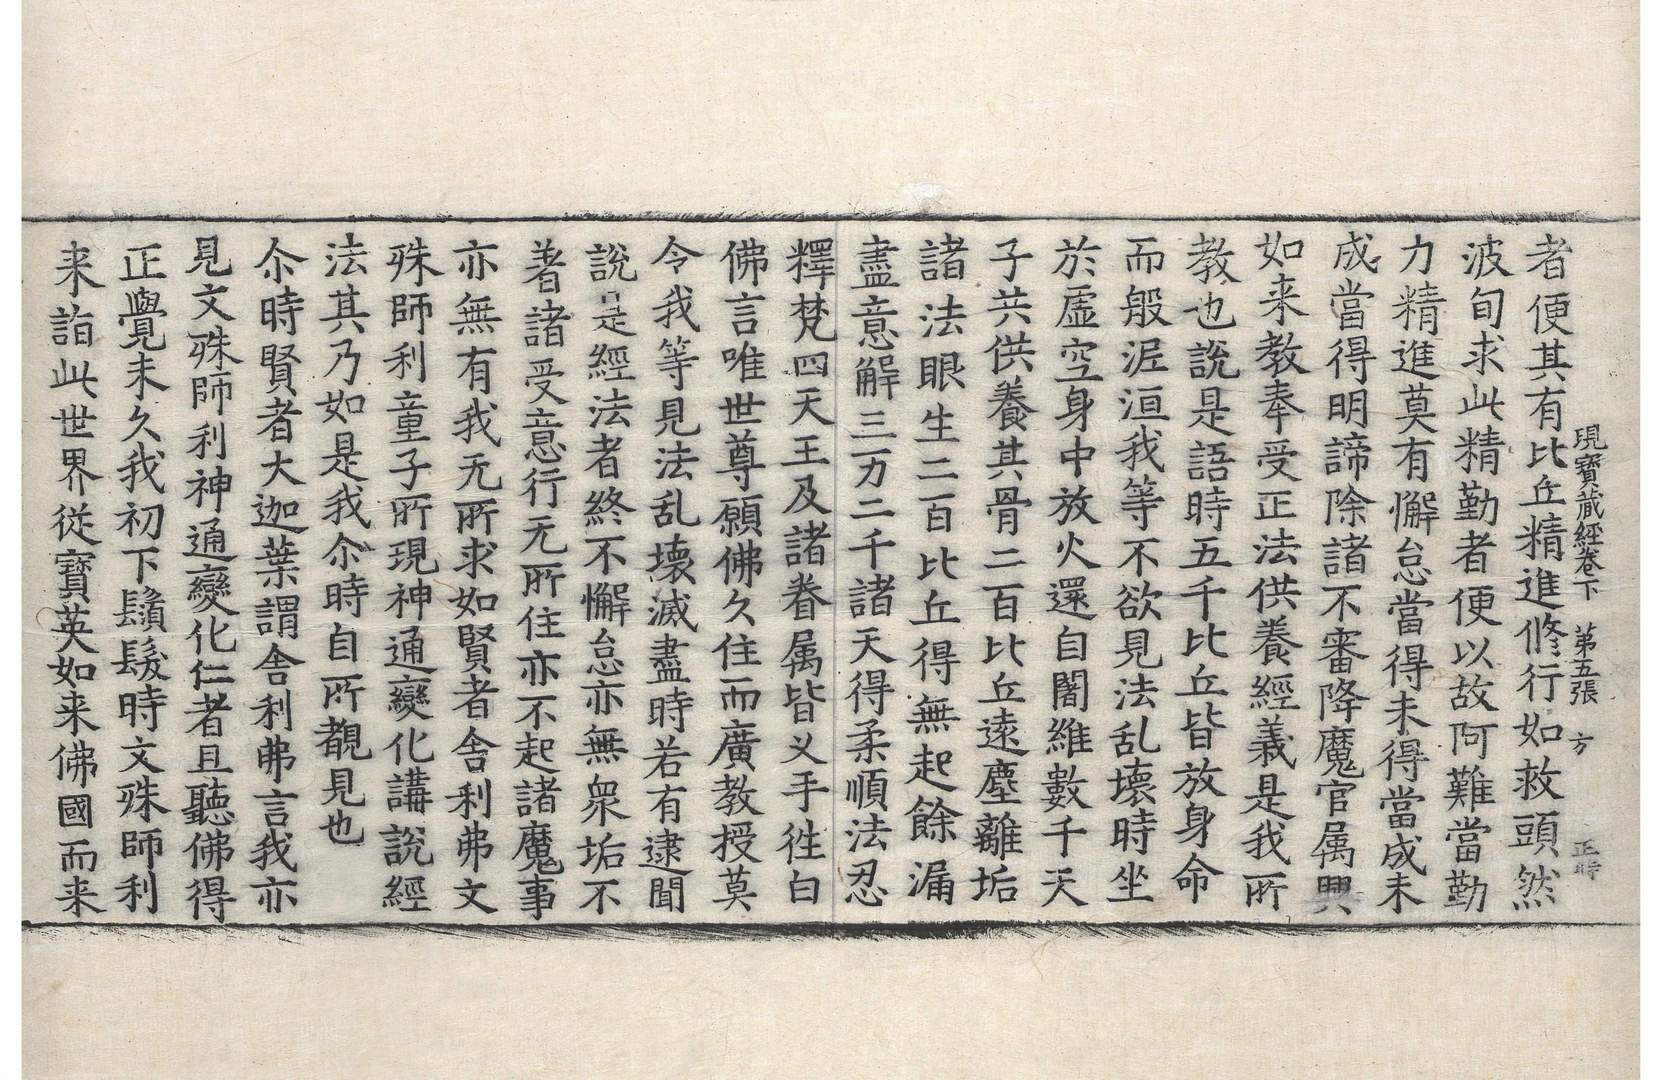 現寶藏經卷下　第五張　方　正時
者便其有比丘精進修行如救頭然
波旬求此精勤者便以故阿難當勤
力精進莫有懈怠當得未得當成未
成當得明諦除諸不審降魔官属興
如来教奉受正法供養經義是我所
教也說是語時五千比丘皆放身命
而般泥洹我等不欲見法乱壞時坐
於虛空身中放火還自闍維數千天
子共供養其骨二百比丘遠塵離垢
諸法眼生二百比丘得無起餘漏
盡意解三万二千諸天得柔順法忍
釋梵四天王及諸眷属皆义手往白
佛言唯世尊願佛久住而廣教授莫
令我等見法乱壞滅盡時若有逮聞
說是經法者終不懈怠亦無衆垢不
著諸受意行无所住亦不起諸魔事
亦無有我无所求如賢者舍利弗文
殊師利童子所現神通變化講說經
法其乃如是我尒時自所覩見也
尒時賢者大迦葉謂舍利弗言我亦
見文殊師利神通變化仁者且聽佛得
正覺未久我初下鬚髮時文殊師利
来詣此世界從寶英如来佛國而来